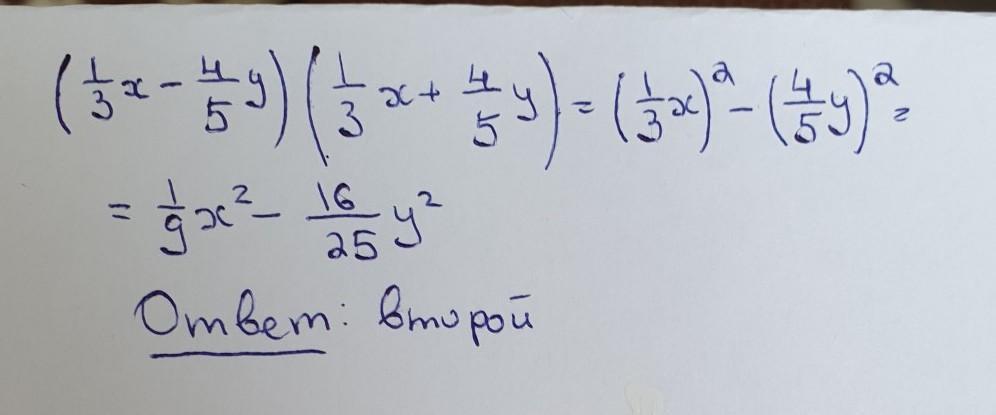 (1/3 x - 4/5 y)(1/3 x + 4/5 y) = (1/3 x)² - (4/5 y)² =
= 1/9 x² - 16/25 y²
Ответ: второй